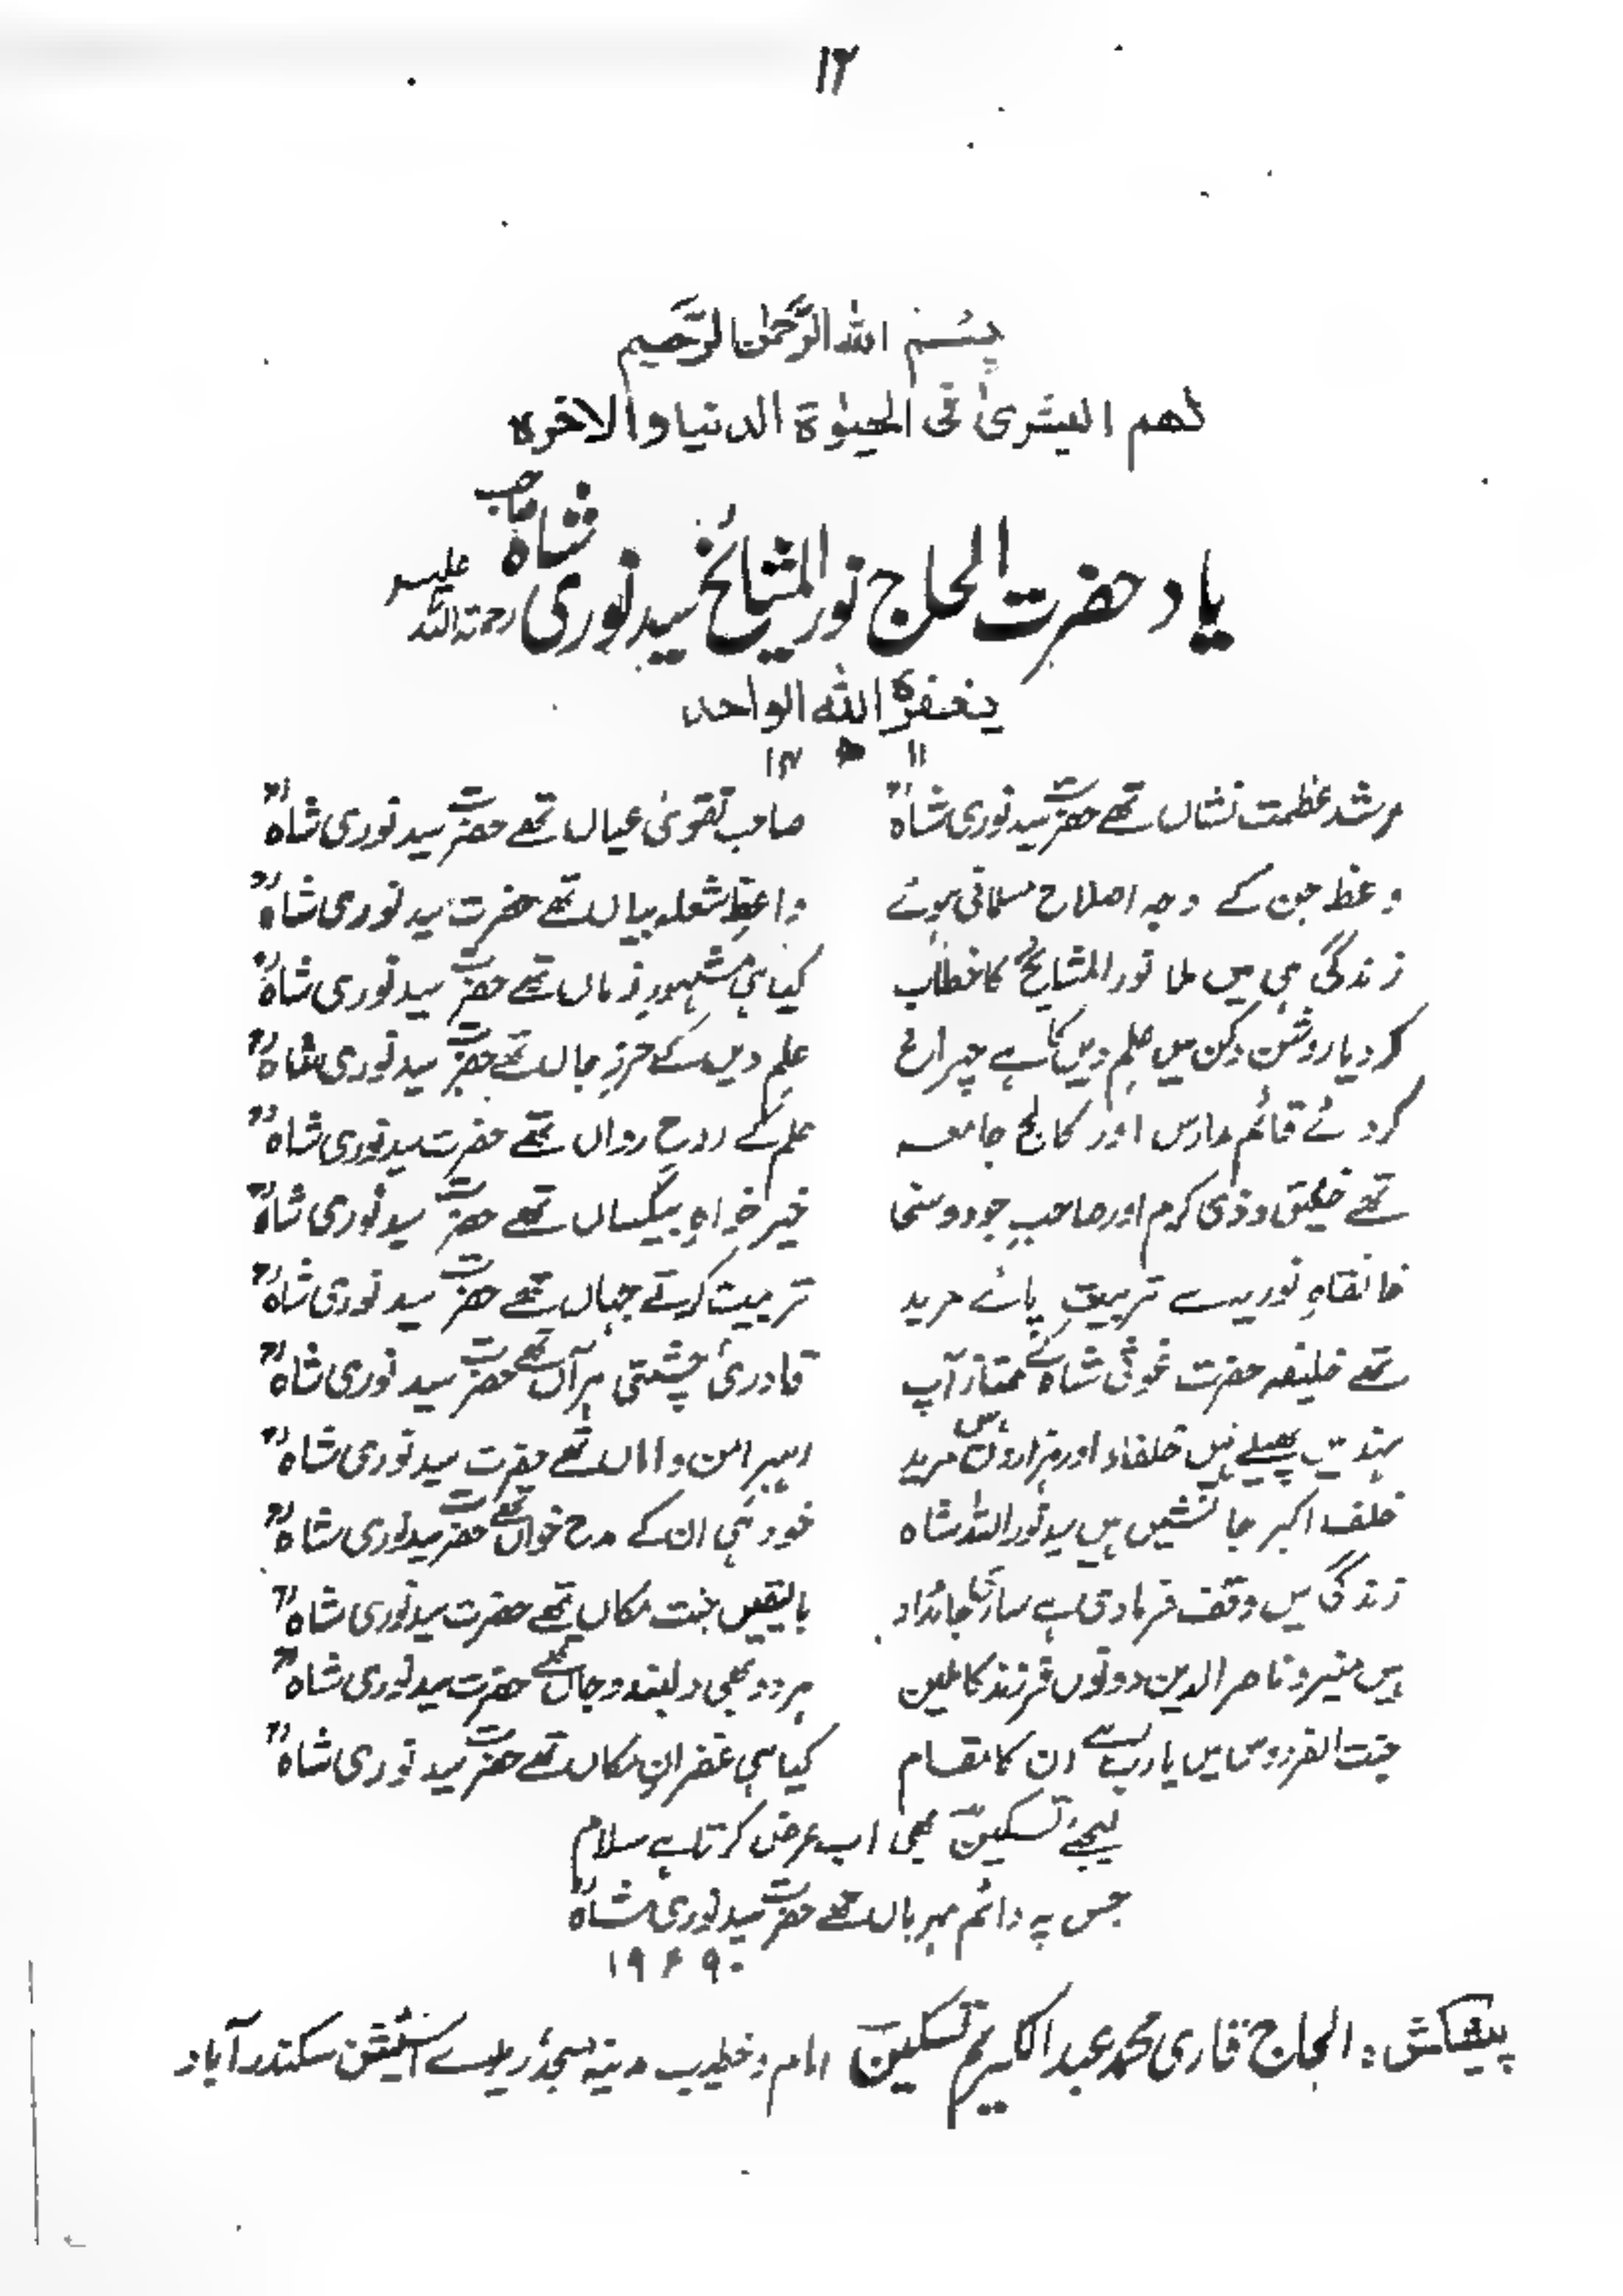 ۱۲
بِسْمِ اللہ الرَّحمٰن الرَّحیم
لهم البشریٰ فی الحیوٰۃ الدنیا والاخرہ
یاد حضرت الحاج نور المشائخ سید نوری شاہ صاحب رحمۃ اللہ علیہ
یغفرہ اللہ الواحد
۱۱ ھ ۱۴
مرشد عظمت نشاں تھے حضرت سید نوری شاہؒ صاحب تقویٰ عیاں تھے حضرت سید نوری شاہؒ
وعظ جن کے وجہ اصلاح مسلمانی ہوئے واعظِ شعلہ بیاں تھے حضرت سید نوری شاہؒ
زندگی ہی میں ملا نور المشائخ کا خطاب کیا ہی مشہورِ زماں تھے حضرت سید نوری شاہؒ
کردیا روشن دکن میں علم دیں کا ہے چراغ علم دیں کے حرزِ جاں تھے حضرت سید نوری شاہؒ
کردئے قائم مدارس اور کالج جامعہ علم کے روح رواں تھے حضرت سید نوری شاہؒ
تھے خلیق و ذی کرم اور صاحبِ جود و سخی خیر خواہِ بیکساں تھے حضرت سید نوری شاہؒ
خانقاہِ نوریہ سے تربیت پائے مرید تربیت کرتے جہاں تھے حضرت سید نوری شاہؒ
تھے خلیفہ حضرت غوثی شاہ کے ممتاز آپ قادریٔ چشتی ہر آں تھے حضرت سید نوری شاہؒ
ہند میں پھیلے ہیں خلفاء اور ہزاروں مرید رہبرِ امن و اماں تھے حضرت سید نوری شاہؒ
خلف اکبر جانشیں ہیں سید نور اللہ شاہ خود ہی ان کے مدح خواں تھے حضرت سید نوری شاہؒ
زندگی میں وقف فرمادی ہے ساری جائداد بالیقیں جنت مکاں تھے حضرت سید نوری شاہؒ
ہیں منیر و ناصر الدین دونوں فرزند کاملین ہر دو بھی دلبند و جاں تھے حضرت سید نوری شاہؒ
جنت الفردوس میں یارب ہے ان کا مقام کیا ہی غفران مکاں تھے حضرت سید نوری شاہؒ
لیجئے تسکینؔ بھی اب عرض کرتا ہے سلام
جس پہ دائم مہرباں تھے حضرت سید نوری شاہؒ
۱۹ ء ۹۰
پیشکش : الحاج قاری محمد عبد الکریم تسکینؔ امام و خطیب مدینہ مسجد ریلوے اسٹیشن سکندر آباد